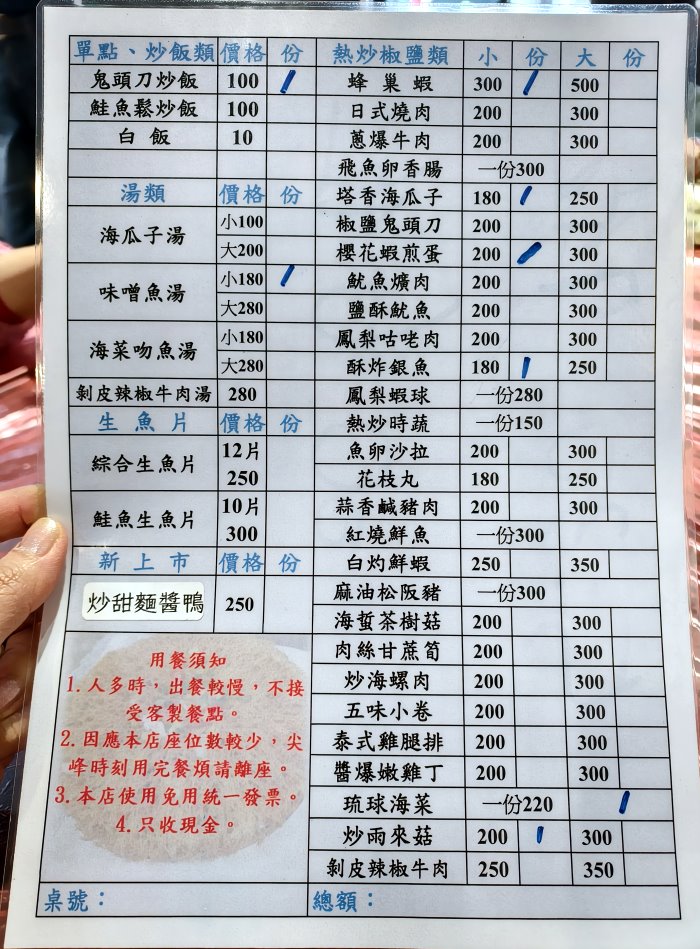 單點、炒飯類 價格 份
鬼頭刀炒飯 100
鮭魚鬆炒飯 100
白飯 10
湯類 價格 份
海瓜子湯 小100
大200
味噌魚湯 小180
大280
海菜吻魚湯 小180
大280
剝皮辣椒牛肉湯 280
生魚片 價格 份
綜合生魚片 12片
250
鮭魚生魚片 10片
300
新上市 價格 份
炒甜麵醬鴨 250
用餐須知
1.人多時,出餐較慢,不接
受客製餐點。
2.因應本店座位數較少,尖
峰時刻用完餐煩請離座。
3.本店使用免用統一發票。
4.只收現金。
桌號:
熱炒椒鹽類 小 份 大 份
蜂巢蝦 300 500
日式燒肉 200 300
蔥爆牛肉 200 300
飛魚卵香腸 一份300
塔香海瓜子 180 250
椒鹽鬼頭刀 200 300
櫻花蝦煎蛋 200 300
魷魚爌肉 200 300
鹽酥魷魚 200 300
鳳梨咕咾肉 200 300
酥炸銀魚 180 250
鳳梨蝦球 一份280
熱炒時蔬 一份150
魚卵沙拉 200 300
花枝丸 180 250
蒜香鹹豬肉 200 300
紅燒鮮魚 一份300
白灼鮮蝦 250 350
麻油松阪豬 一份300
海蜇茶樹菇 200 300
肉絲甘蔗筍 200 300
炒海螺肉 200 300
五味小卷 200 300
泰式雞腿排 200 300
醬爆嫩雞丁 200 300
琉球海菜 一份220
炒雨來菇 200 300
剝皮辣椒牛肉 250 350
總額: